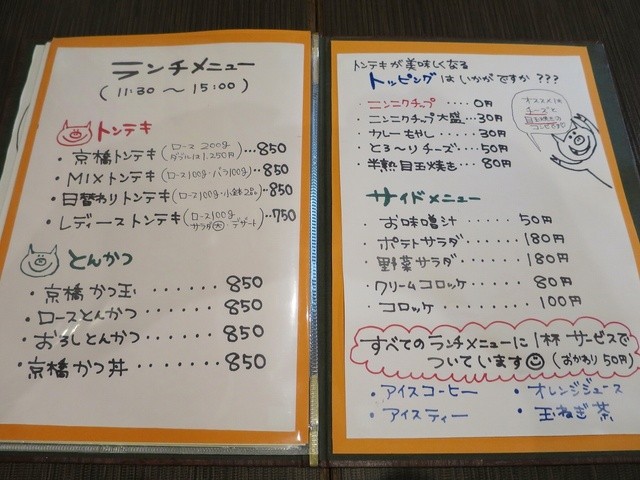 ランチメニュー
(11:30 〜 15:00)
トンテキ
・京橋トンテキ(ロース 200g ダブルは1.250円)‥850
・MIXトンテキ(ロース100g・バラ100g)‥850
・日替わりトンテキ(ロース100g・小鉢2品)‥850
・レディーストンテキ(ロース100g サラダ(大)・デザート)‥750
とんかつ
・京橋かつ玉 ・・・・・・850
・ロースとんかつ・・・・・850
・おろしとんかつ・・・・・850
・京橋かつ丼・・・・・・850
トンテキが美味しくなる
トッピングはいかがですか ???
・ニンニクチップ ・・・・0円
・ニンニクチップ大盛・・・30円
・カレーもやし・・・・30円
・とろ〜りチーズ・・・・50円
・半熟目玉焼き・・・80円
オススメは
チーズと
目玉焼きの
コンビです♡
サイドメニュー
・お味噌汁 ・・・・・50円
・ポテトサラダ・・・・・・180円
・野菜サラダ・・・・・・180円
・クリームコロッケ・・・・・80円
・コロッケ ・・・・・・100円
すべてのランチメニューに1杯サービスで
ついています☺(おかわり50円)
・アイスコーヒー ・オレンジジュース
・アイスティー ・玉ねぎ茶